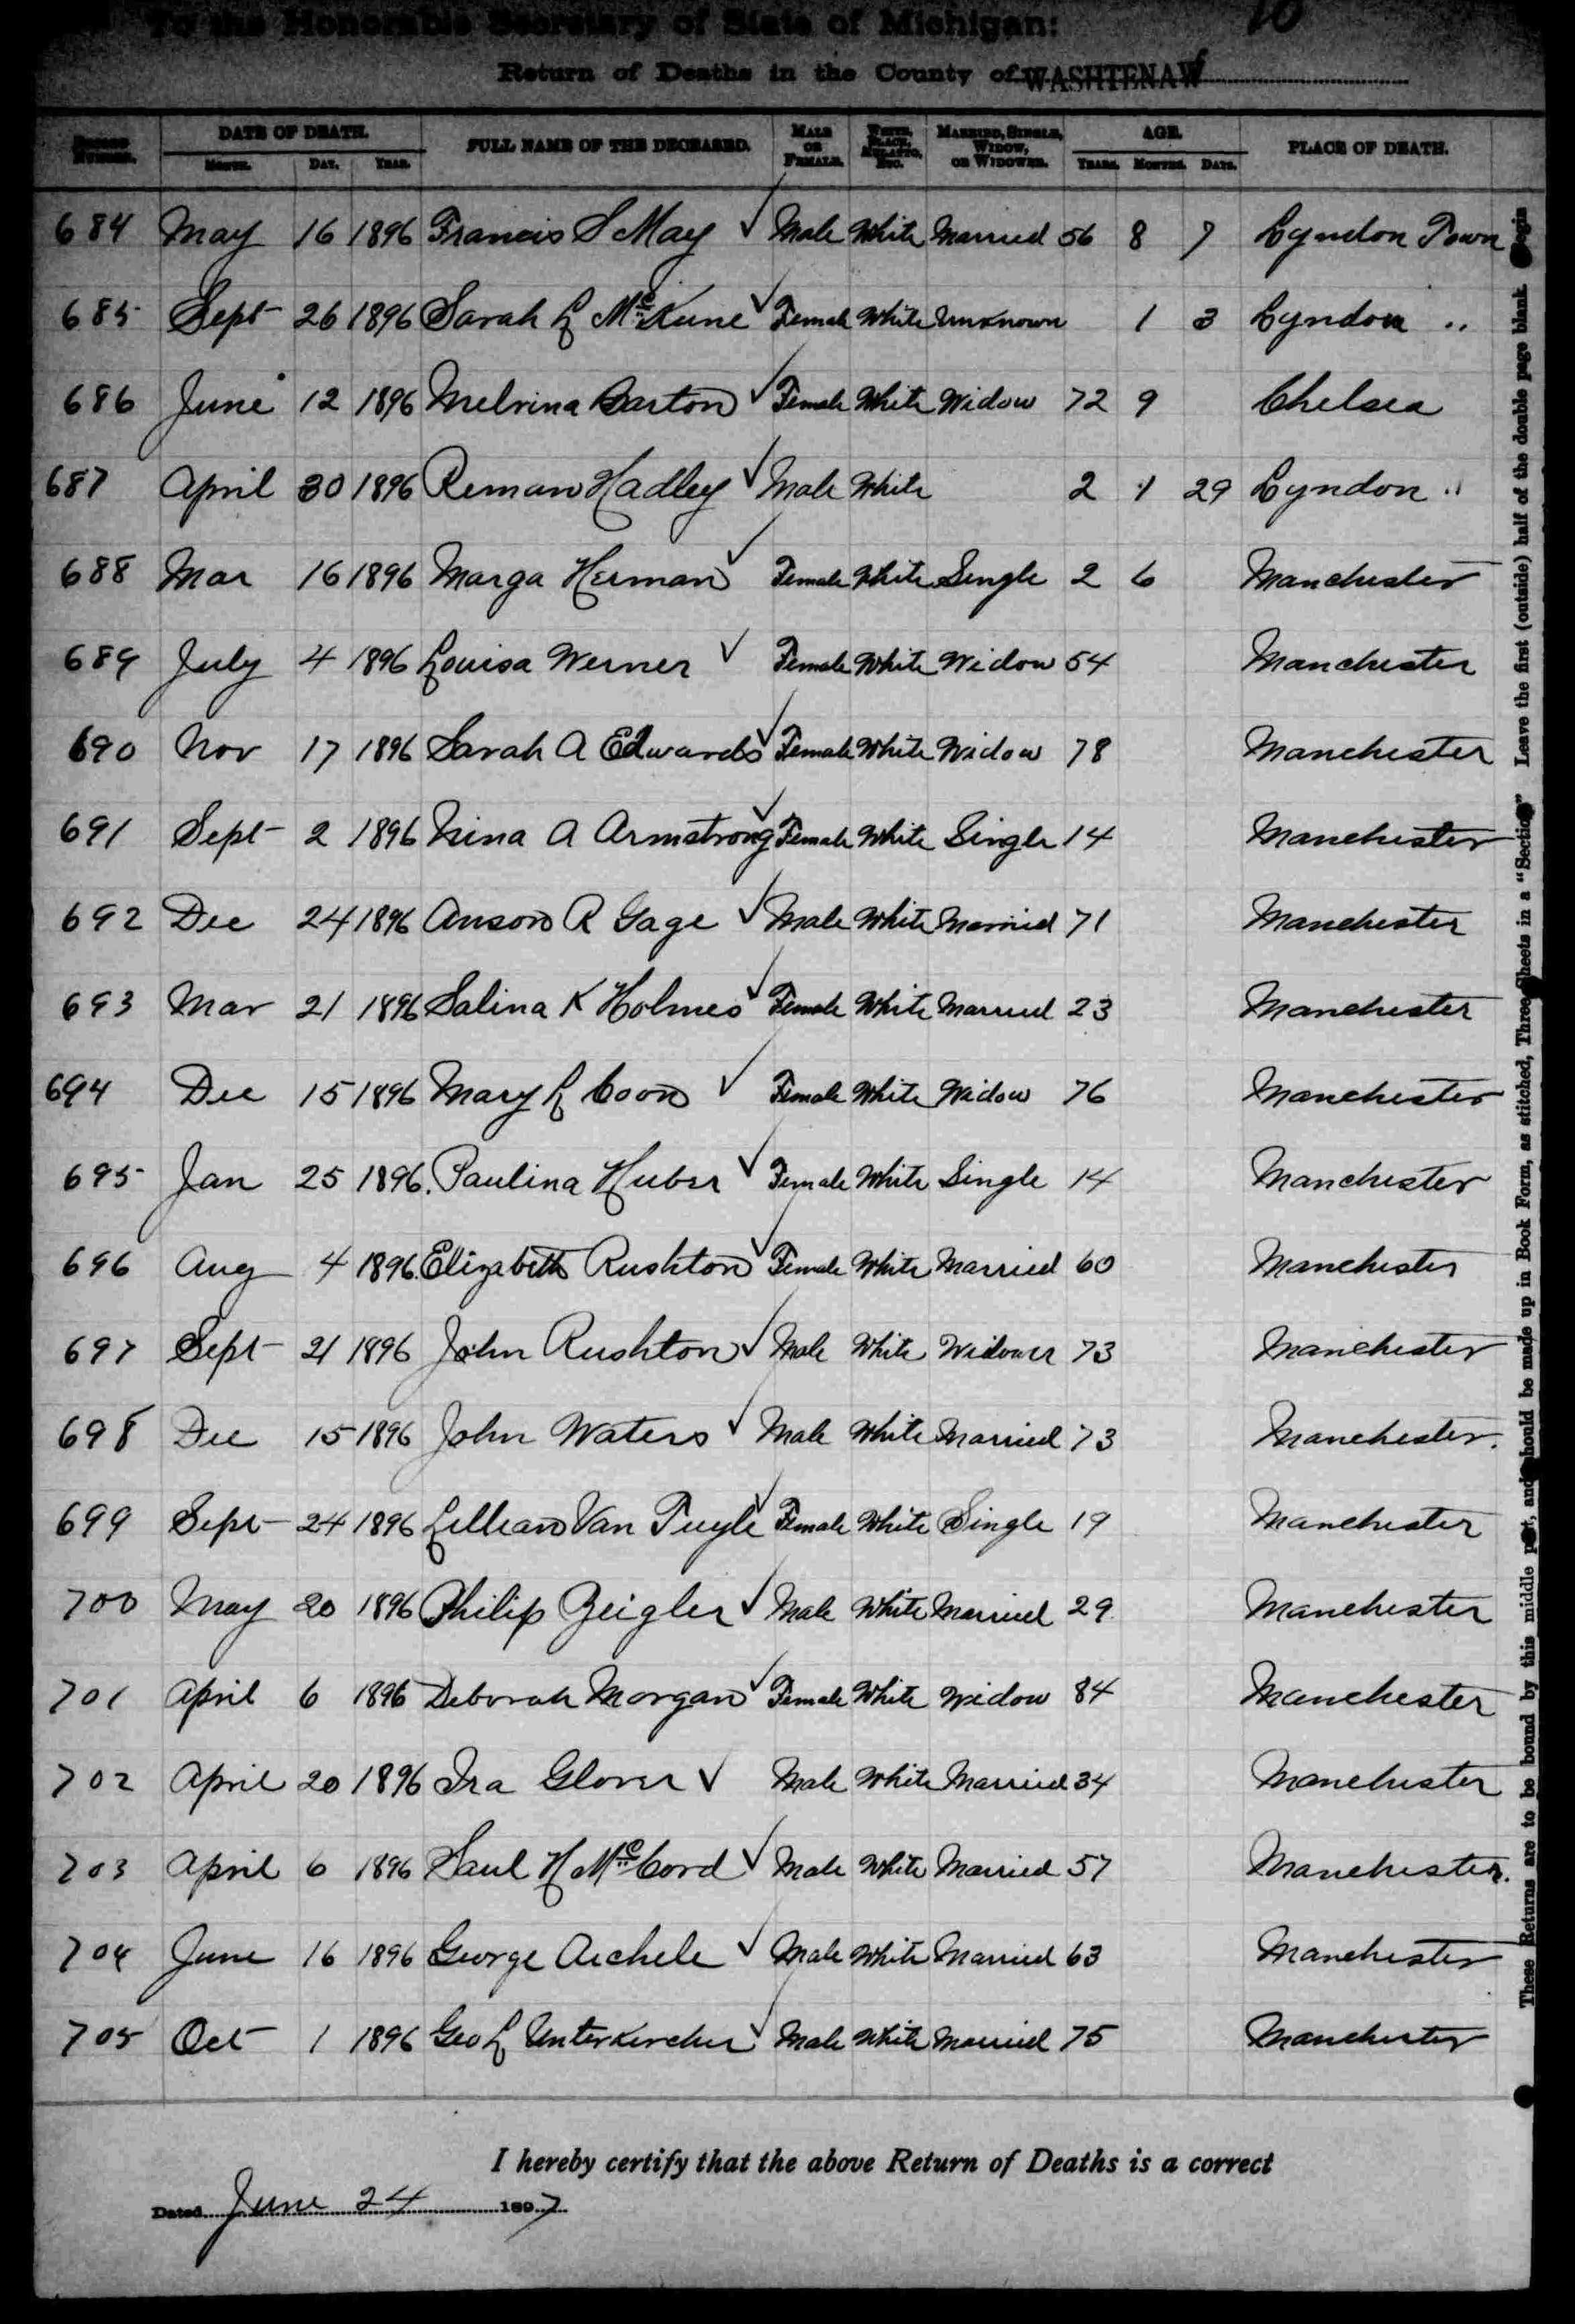 To the Honorable Secretary of State of Michigan: 10
Return of Deaths in the County of WASHTENAW
RECORD NUMBER. DATE OF DEATH. FULL NAME OF THE DECEASED. MALE OR FEMALE. WHITE, BLACK, MULATTO, ETC. MARRIED, SINGLE, WIDOW, OR WIDOWER. AGE. PLACE OF DEATH.
MONTH. DAY. YEAR. YEARS. MONTHS. DAYS.
684 May 16 1896 Francis S May ✓ Male White Married 56 8 7 Lyndon Town
685 Sept 26 1896 Sarah L McKune ✓ Female White Unknown 1 3 Lyndon "
686 June 12 1896 Melvina Barton ✓ Female White Widow 72 9 Chelsea
687 April 30 1896 Reman Hadley ✓ Male White 2 1 29 Lyndon "
688 Mar 16 1896 Marga Herman ✓ Female White Single 2 6 Manchester
689 July 4 1896 Louisa Werner ✓ Female White Widow 54 Manchester
690 Nov 17 1896 Sarah A Edwards ✓ Female White Widow 78 Manchester
691 Sept 2 1896 Nina A Armstrong ✓ Female White Single 14 Manchester
692 Dec 24 1896 Anson R Gage ✓ Male White Married 71 Manchester
693 Mar 21 1896 Salina K Holmes ✓ Female White Married 23 Manchester
694 Dec 15 1896 Mary L Coon ✓ Female White Widow 76 Manchester
695 Jan 25 1896. Paulina Huber ✓ Female White Single 14 Manchester
696 Aug 4 1896. Elizabeth Rushton ✓ Female White Married 60 Manchester
697 Sept 21 1896 John Rushton ✓ Male White Widower 73 Manchester
698 Dec 15 1896 John Waters ✓ Male White Married 73 Manchester.
699 Sept 24 1896 Lillian Van Tuyle ✓ Female White Single 19 Manchester
700 May 20 1896 Philip Zeigler ✓ Male White Married 29 Manchester
701 April 6 1896 Deborah Morgan ✓ Female White Widow 84 Manchester
702 April 20 1896 Ira Glover ✓ Male White Married 34 Manchester
703 April 6 1896 Saul H McCord ✓ Male White Married 57 Manchester.
704 June 16 1896 George Aichele ✓ Male White Married 63 Manchester
705 Oct 1 1896 Geo L Unterkircher ✓ Male White Married 75 Manchester
I hereby certify that the above Return of Deaths is a correct
Dated June 24 1897
These Returns are to be bound by this middle part, and should be made up in Book Form, as stitched, Three Sheets in a "Section" Leave the first (outside) half of the double page blank.